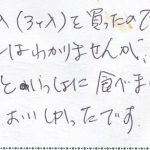 入(3ヶ入)を買ったので
ンはわかりませんが、
といっしょに食べま
おいしかったです